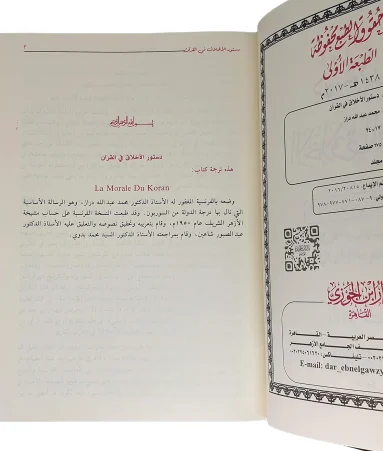 دستور الأخلاق في القرآن
٣
دستور الأخلاق في القرآن
هذه ترجمة كتاب:
La Morale Du Koran
وضعه بالفرنسية المغفور له الأستاذ الدكتور محمد عبد الله دراز، وهو الرسالة الأساسية
التي نال بها درجة الدولة من السوربون. وقد طبعت النسخة الفرنسية على حساب مشيخة
الأزهر الشريف عام ١٩٥٠م، وقام بتعريبه وتحقيق نصوصه والتعليق عليه الأستاذ الدكتور
عبد الصبور شاهين، كما وقام بمراجعته الأستاذ الدكتور السيد محمد بدوي.
حقوق الطبع محفوظة
الطبعة الأولى
١٤٣٨ هـ - ٢٠١٧م
دستور الأخلاق في القرآن
محمد عبد الله دراز
٢٤×١٧
صفحة
مجلد
دار ابن الجوزي
القاهرة
مصر العربية - القاهرة
خلف الجامع الأزهر
E-mail: dar_ebnelgawzy